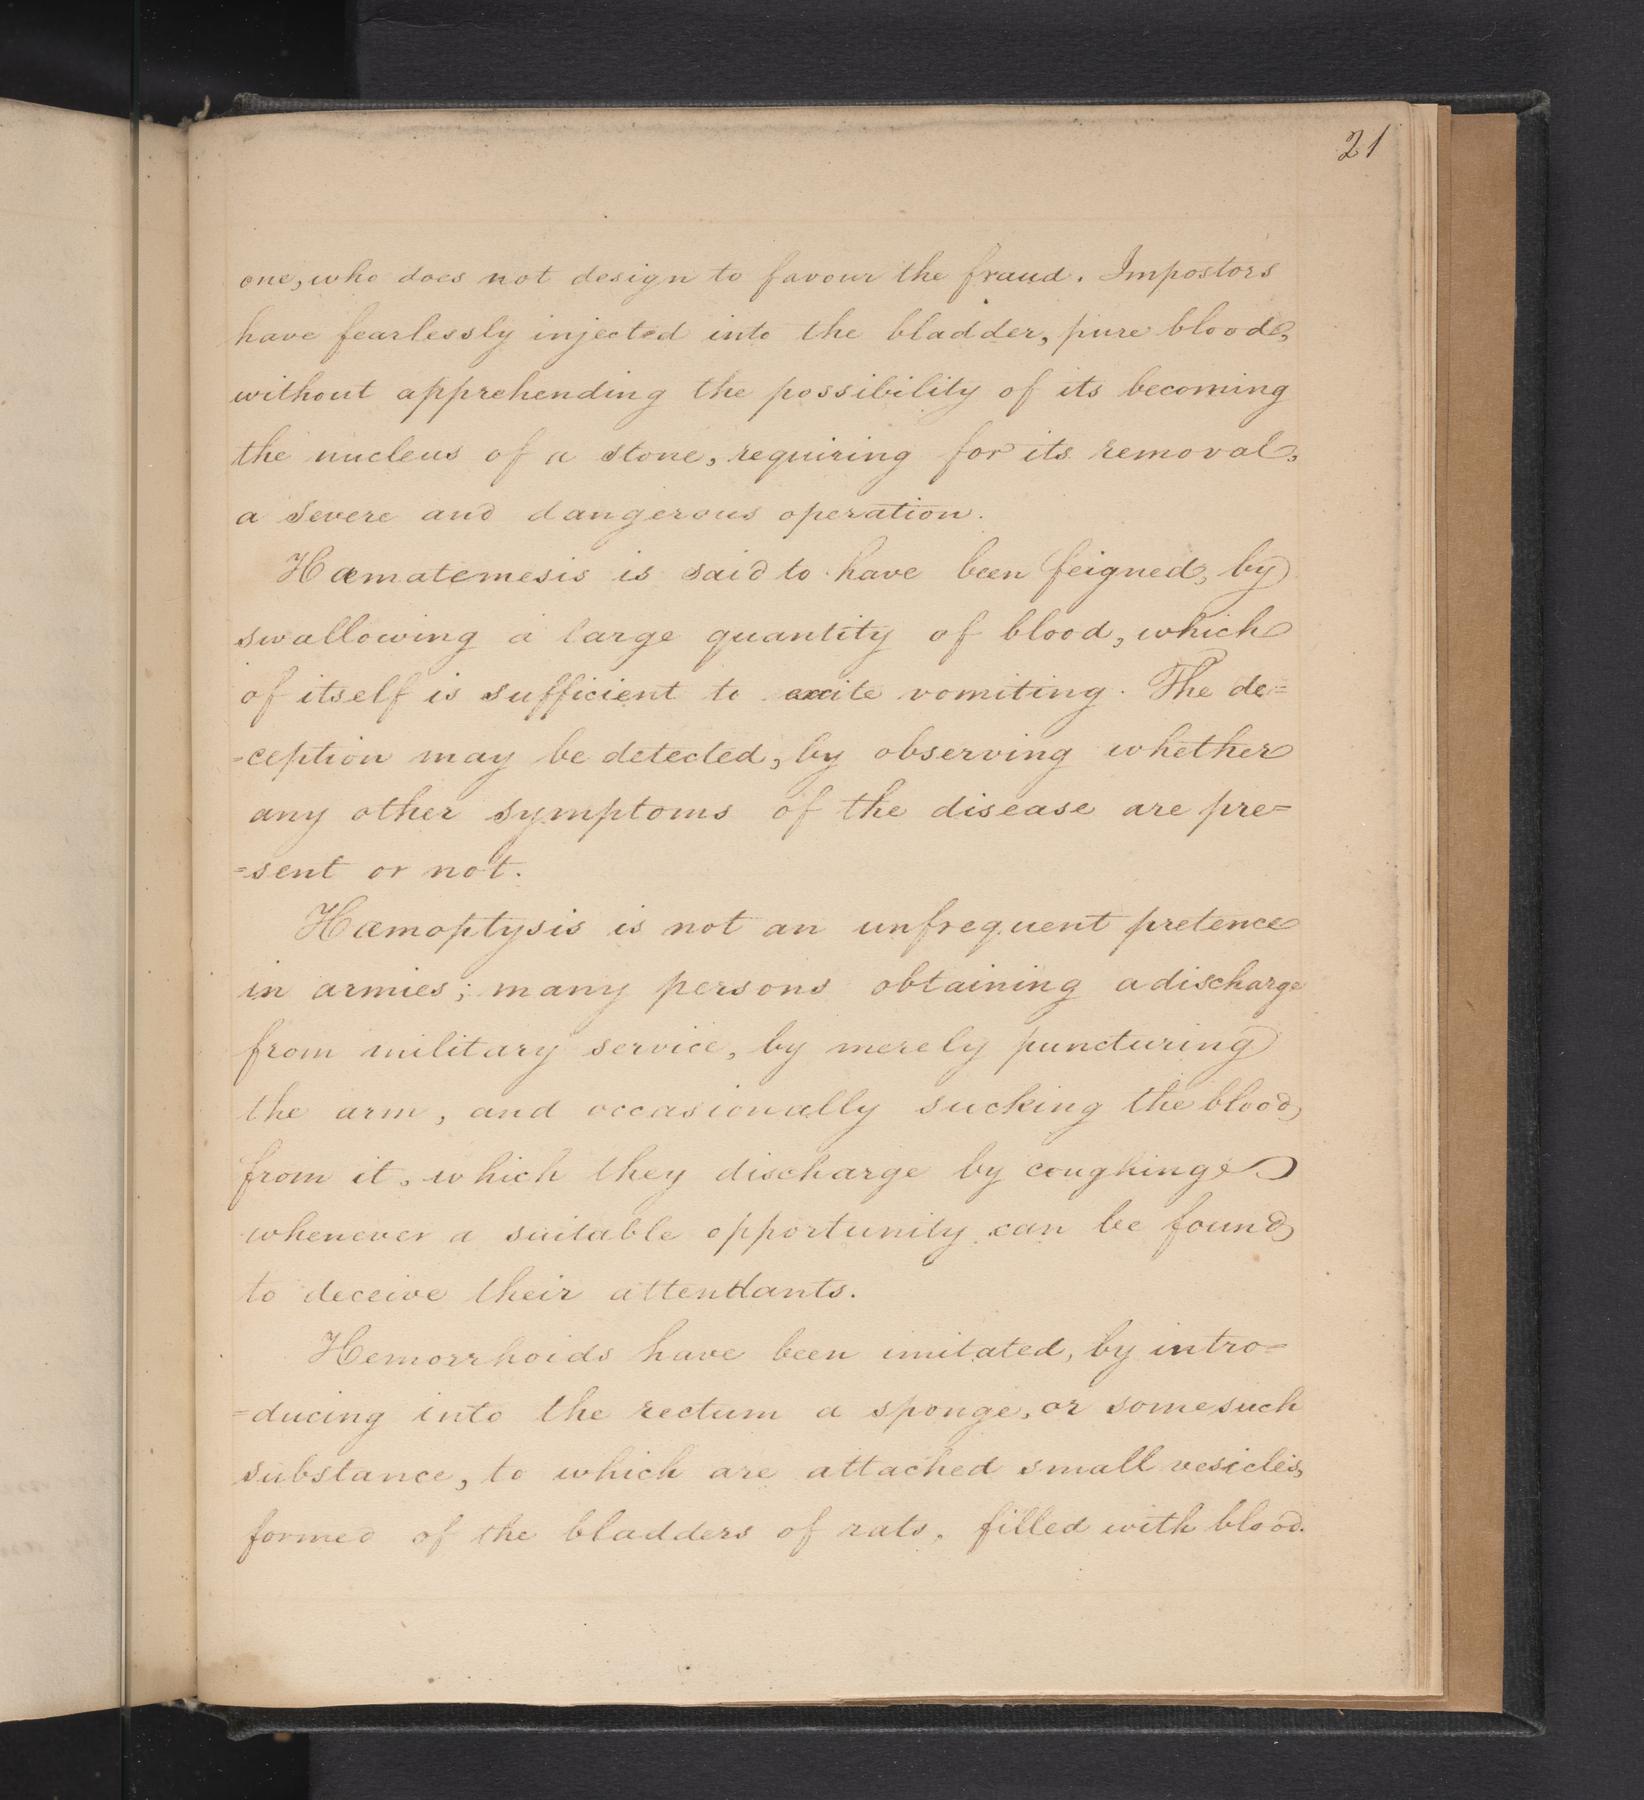 21
one, who does not design to favour the fraud. Impostors
have fearlessly injected into the bladder, pure blood,
without apprehending the possibility of its becoming
the nucleus of a stone, requiring for its removal,
a severe and dangerous operation.
Hæmatemesis is said to have been feigned, by
swallowing a large quantity of blood, which
of itself is sufficient to excite vomiting. The de=
=ception may be detected, by observing whether
any other symptoms of the disease are pre=
=sent or not.
Hæmoptysis is not an unfrequent pretence
in armies; many persons obtaining a discharge
from military service, by merely puncturing
the arm, and occasionally sucking the blood,
from it, which they discharge by coughing
whenever a suitable opportunity can be found,
to deceive their attendants.
Hemorrhoids have been imitated, by intro=
=ducing into the rectum a sponge, or some such
substance, to which are attached small vesicles,
formed of the bladders of rats, filled with blood.